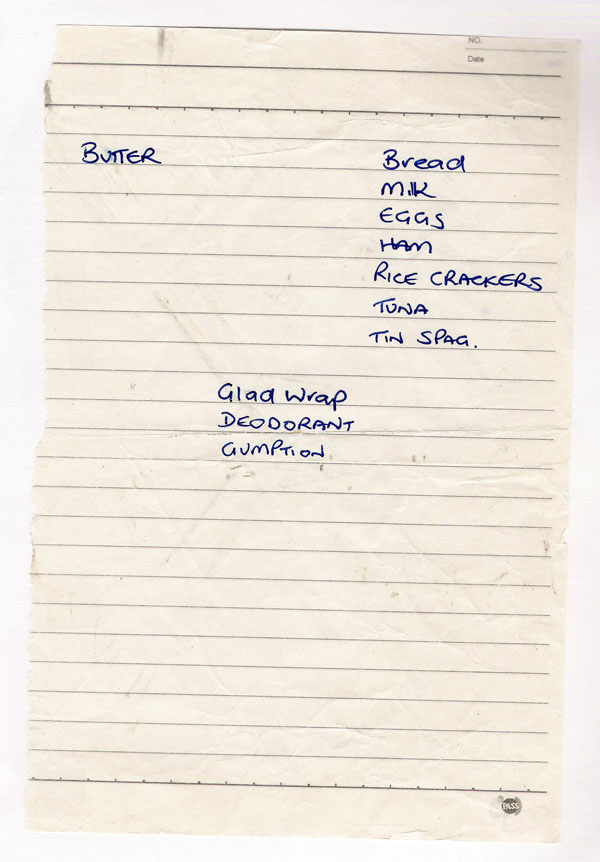 NO.
Date
BUTTER
Bread
Milk
EGGS
HAM
RICE CRACKERS
TUNA
TIN SPAG.
Glad Wrap
DEODORANT
GUMPTION
PASS